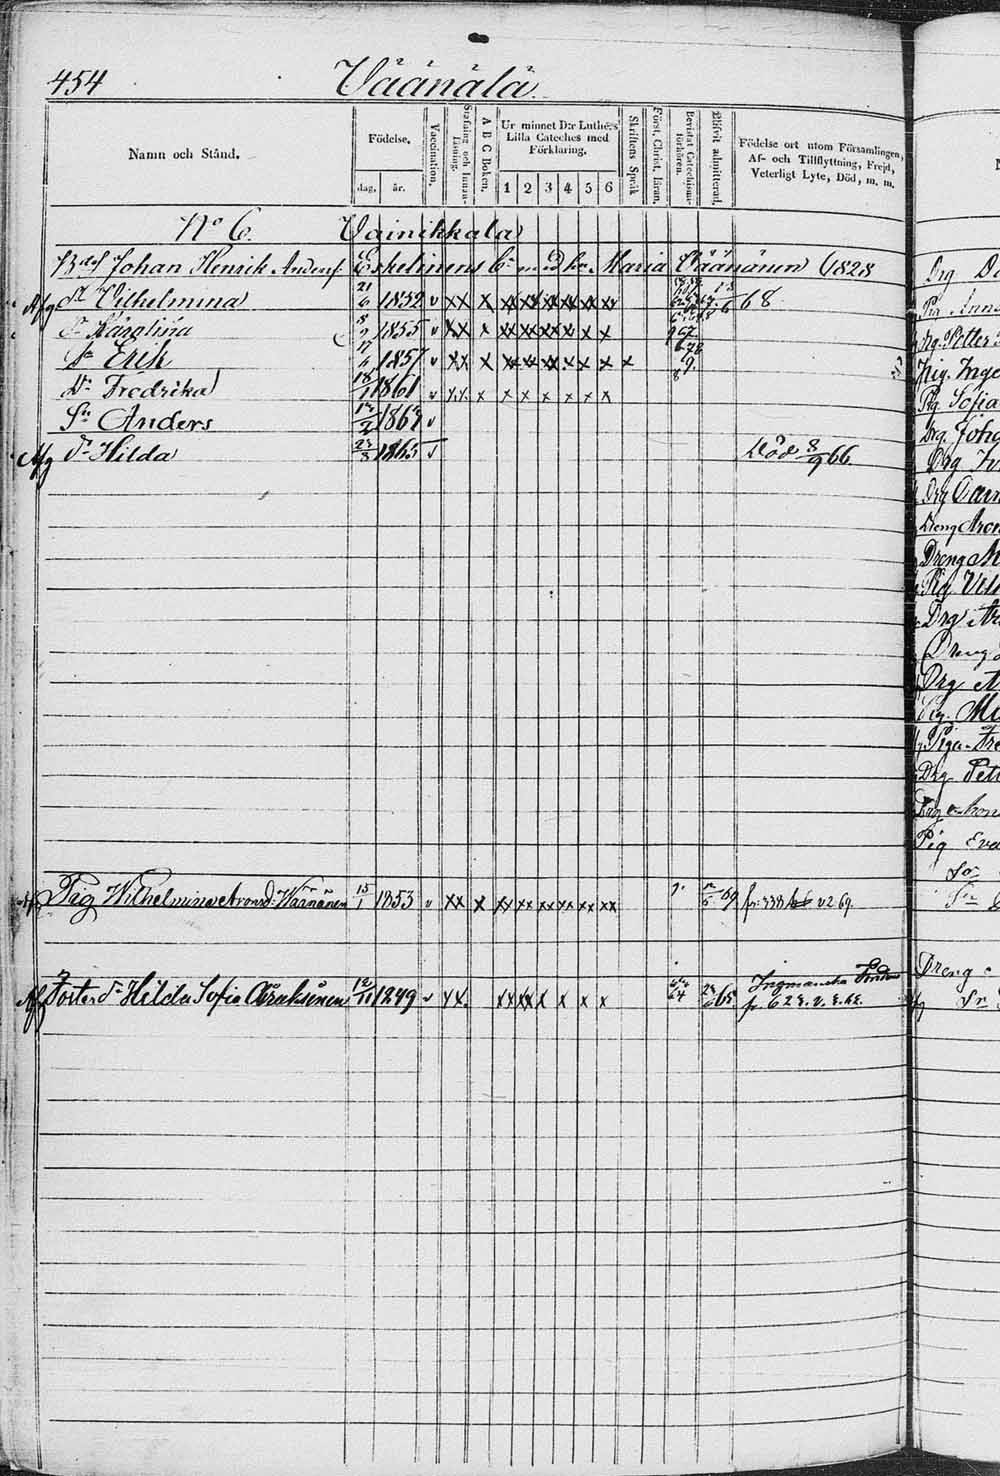 454 Väänälä
Namn och Stånd.
Födelse.
dag. år.
Vaccination.
Stafning och Innan-läsning.
A B C Boken.
Ur minnet D:r Luthers Lilla Cateches med Förklaring.
1 2 3 4 5 6
Skriftens Språk
Först. Christ. läran.
Bevistat Catechismi-förhören.
Blifvit admitterad.
Födelse ort utom Församlingen, Af- och Tillflyttning, Frejd, Veterligt Lyte, Död, m. m.
No 6. Vainikkala
Johan Henrik Anderss Eskelinens Maria Väänänen 1828
Afg Dr Vilhelmina 21/6 1852 v xx x xx xx xx xx xx xx 68
Dr Karolina 8/2 1855 v xx x xx xx xx xx x x 67
Sn Erik 17/4 1857 v xx x xx xx xx x x x x
Dr Fredrika 18/1 1861 v xx x x x x x x x
Sn Anders 1863 v
Afg Dr Hilda 23/8 1865 v Död 8/9 66.
Pig Wilhelmina Aronsd: Väänänen 15/1 1853 v xx x xx xx xx xx xx xx 69 fr: 338 v 2 69.
Af Foster dr Hilda Sofia 12/11 1849 v xx. xx xx x x x x 64 65 Ingmanska
fr. 62
Drg
Pig Anna
Drg. Petter
Pig. Inge
Pig. Sofia
Drg. Joha
Drg
Drg
Dreng Aron
Dreng
Pig
Drg
Dreng
Drg
Pig. Ma
Piga Fre
Drg Pett
Drg Aron
Pig Eva
Sn
Dreng
Sn